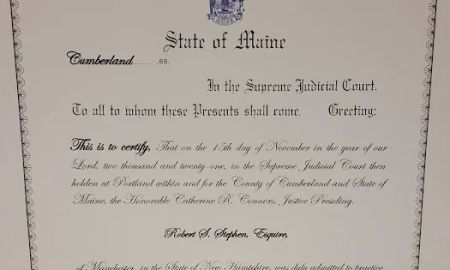 State of Maine
Cumberland ........, ss.
In the Supreme Judicial Court.
To all to whom these Presents shall come, Greeting:
This is to certify, That on the 15th day of November in the year of our
Lord, two thousand and twenty-one, in the Supreme Judicial Court then
holden at Portland within and for the County of Cumberland and State of
Maine, the Honorable Catherine R. Connors, Justice Presiding,
Robert S. Stephen, Esquire,
of Manchester, in the State of New Hampshire, was duly admitted to practice